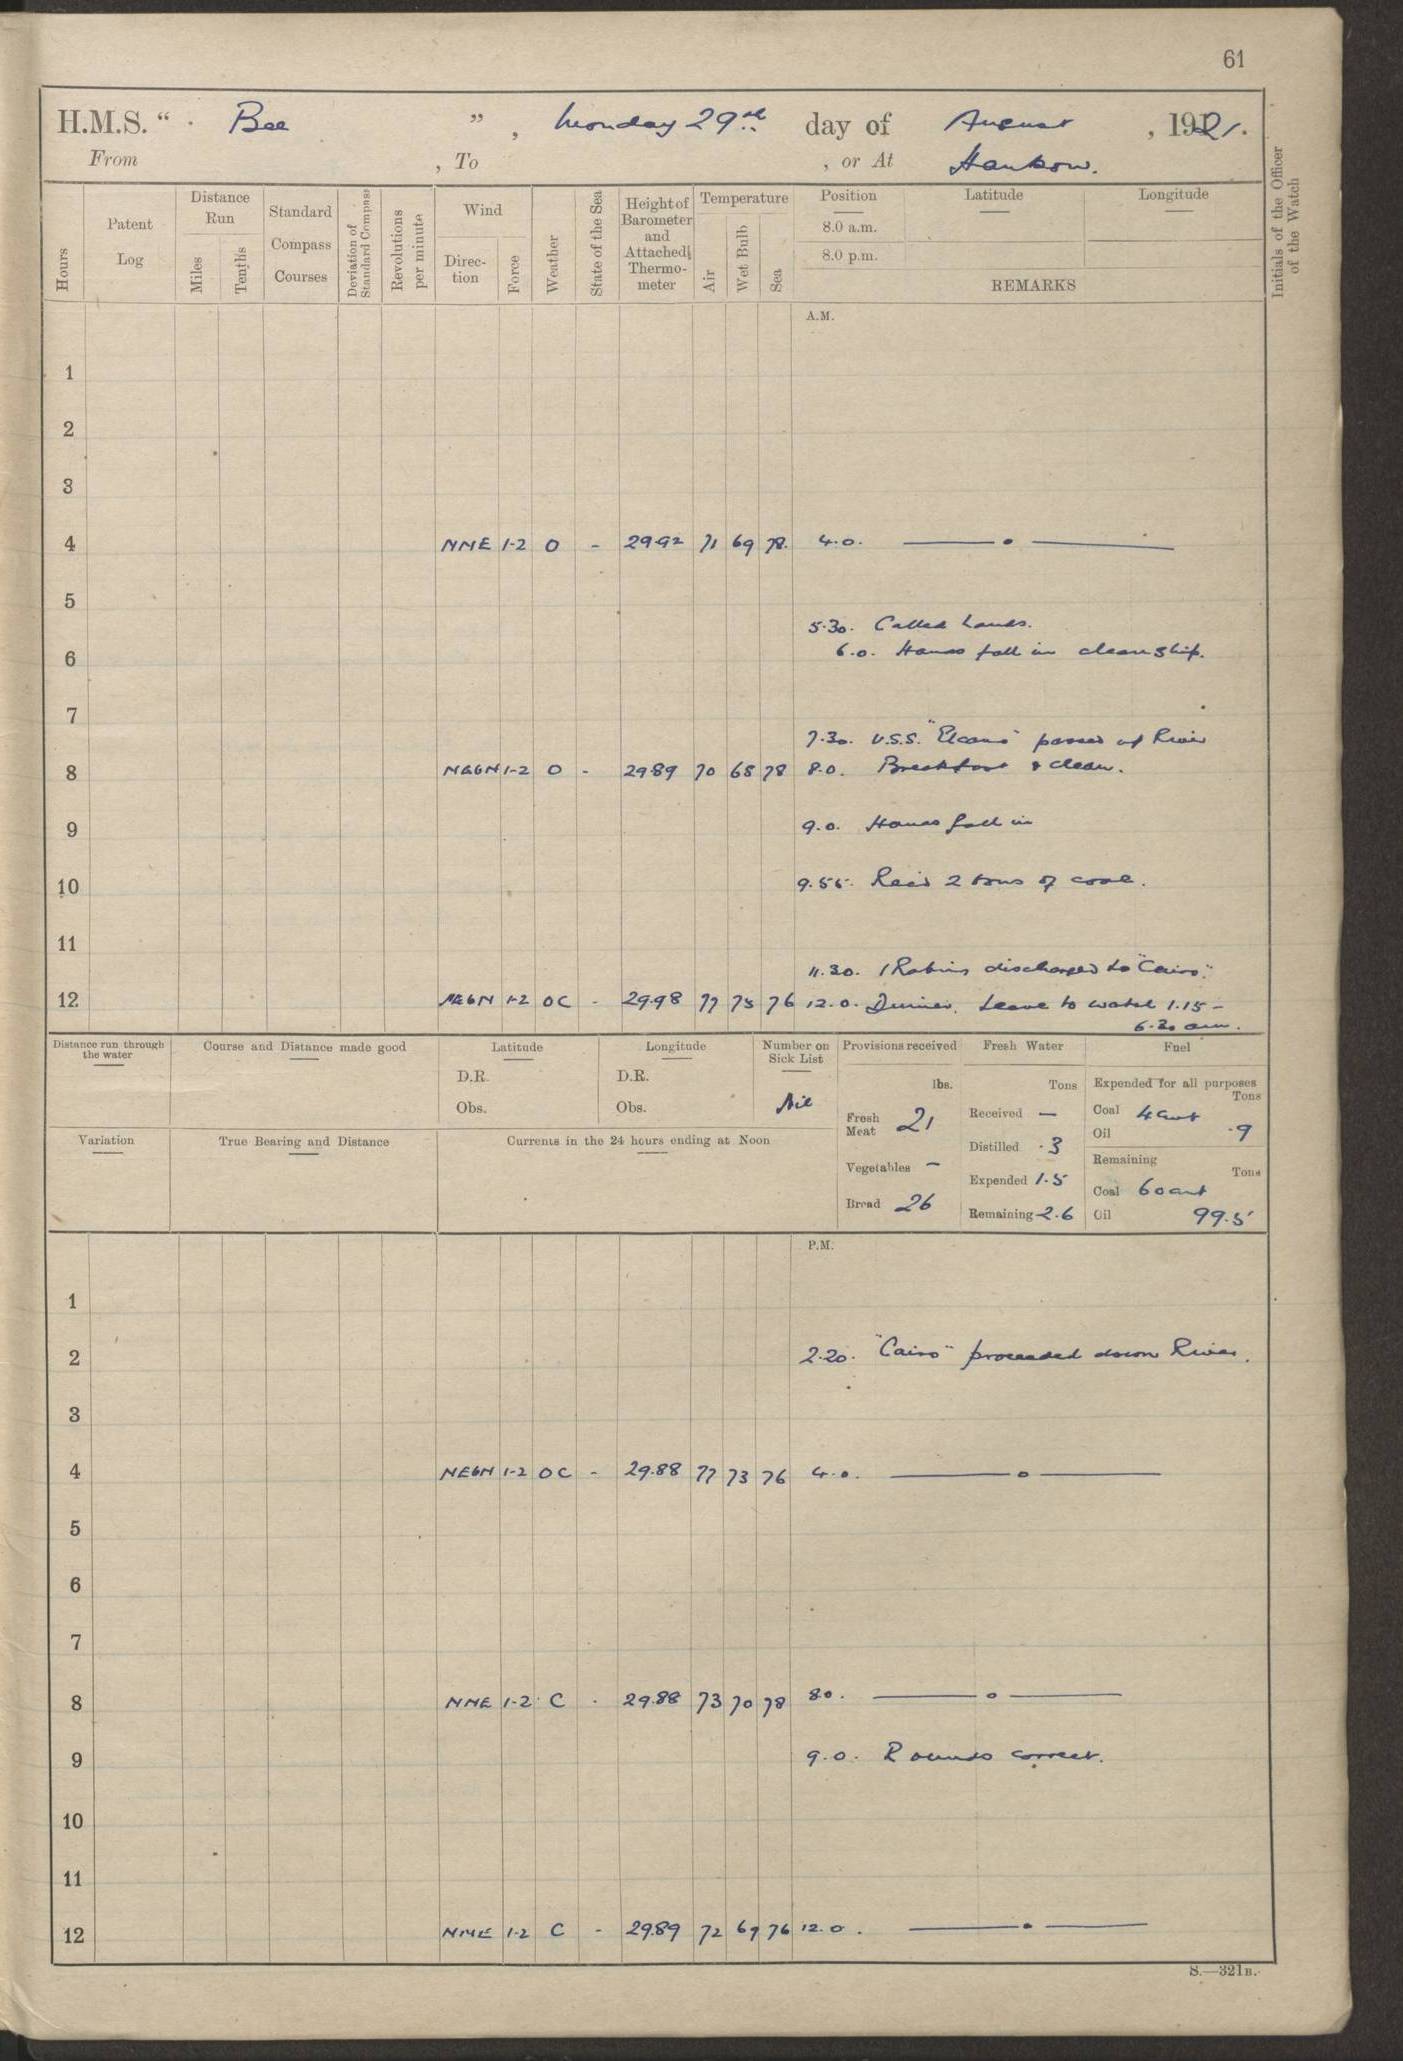 61
H.M.S. " Bee ", Monday 29th day of August, 1921.
From , To , or At Hankow.
Hours Patent Log Distance Run Miles Tenths Standard Compass Courses Deviation of Standard Compass Revolutions per minute Wind Direction Force Weather State of the Sea Height of Barometer and Attached Thermometer Temperature Air Wet Bulb Sea Position Latitude Longitude Initials of the Officer of the Watch
8.0 a.m.
8.0 p.m.
REMARKS
A.M.
1
2
3
4 NNE 1-2 O - 29.92 71 69 78. 4.0. —— • ——
5
5.30. Called hands.
6 6.0. Hands fall in clean ship.
7
7.30. U.S.S. "Elcano" passed up River
8 NE6N 1-2 O - 29.89 70 68 78 8.0. Breakfast & clean.
9 9.0. Hands fall in
10 9.55. Recd 2 tons of coal.
11
11.30. 1 Rating discharged to "Cairo".
12 NE6N 1-2 OC - 29.98 77 73 76 12.0. Dinner. Leave to watch 1.15 -
6.30 am.
Distance run through the water Course and Distance made good Latitude Longitude Number on Sick List Provisions received Fresh Water Fuel
D.R. D.R. lbs. Tons Expended for all purposes Tons
Obs. Obs. Nil Fresh Meat 21 Received — Coal 4 cwt
Distilled .3 Oil .9
Variation True Bearing and Distance Currents in the 24 hours ending at Noon
Vegetables — Expended 1.5 Remaining Tons
Coal 60 cwt
Bread 26 Remaining 2.6 Oil 99.5
P.M.
1
2 2.20. "Cairo" proceeded down River.
3
4 NE6N 1-2 OC - 29.88 77 73 76 4.0. —— o ——
5
6
7
8 NNE 1-2 C - 29.88 73 70 78 80. —— o ——
9 9.0. Rounds correct.
10
11
12 NNE 1-2 C - 29.89 72 69 76 12.0. —— • ——
S.—321B.